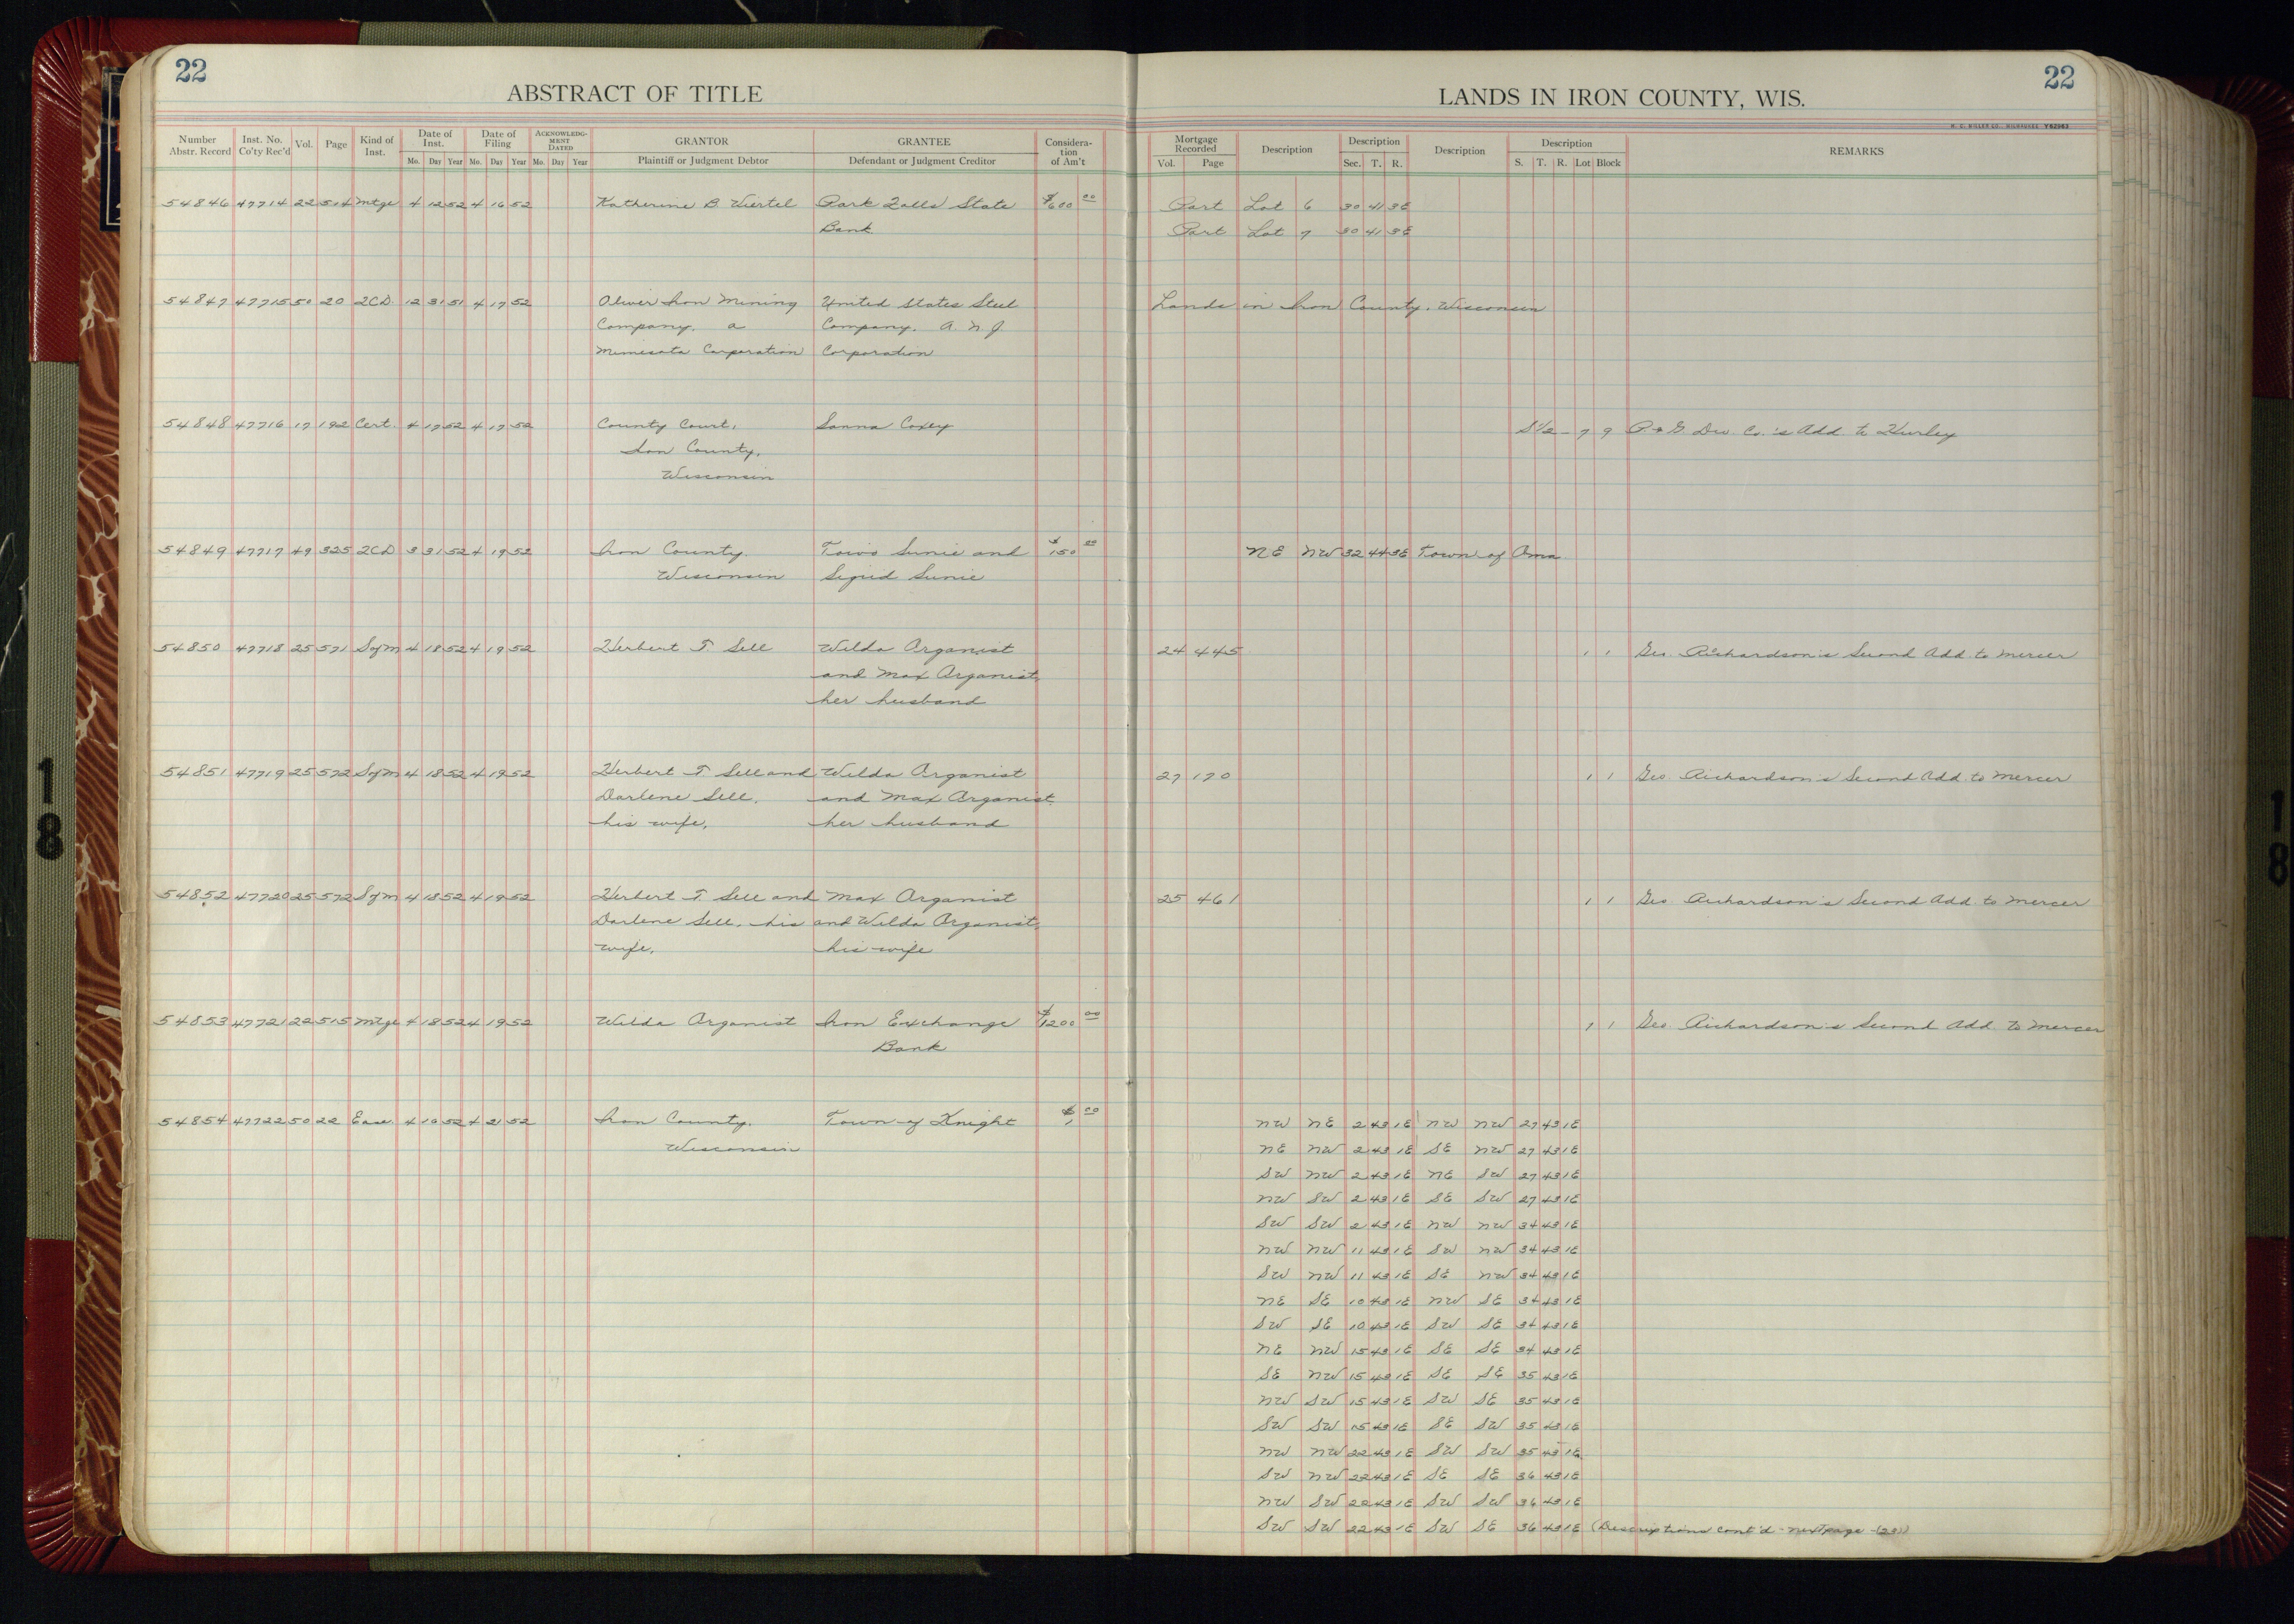 22
ABSTRACT OF TITLE
Number Abstr. Record Inst. No. Co'ty Rec'd Vol. Page Kind of Inst. Date of Inst. Mo. Day Year Date of Filing Mo. Day Year ACKNOWLEDGMENT DATED Mo. Day Year GRANTOR Plaintiff or Judgment Debtor GRANTEE Defendant or Judgment Creditor Consideration of Am't
54846 47714 22 504 Mtge 4 12 52 4 16 52 Katherine B. Viertel Park Falls State $600 00
Bank
54847 47715 50 20 2CD. 12 31 51 4 17 52 Oliver Iron Mining United States Steel
Company, a Company, A. N. J.
Minnesota Corporation Corporation
54848 47716 17 192 Cert. 4 17 52 4 17 52 County Court, Sanna Coxey
Iron County,
Wisconsin
54849 47717 49 325 2CD 3 31 52 4 19 52 Iron County, Toivo Sunie and $150 00
Wisconsin Sigrid Sunie
54850 47718 25 571 Sofm 4 18 52 4 19 52 Herbert T. Sell Wilda Organist
and Max Organist,
her husband
54851 47719 25 572 Sofm 4 18 52 4 19 52 Herbert T. Sell and Wilda Organist
Darlene Sell, and Max Organist,
his wife, her husband
54852 47720 25 572 Sofm 4 18 52 4 19 52 Herbert T. Sell and Max Organist
Darlene Sell, his and Wilda Organist,
wife, his wife
54853 47721 22 515 Mtge 4 18 52 4 19 52 Wilda Organist Iron Exchange $1200 00
Bank
54854 47722 50 22 Ease. 4 10 52 4 21 52 Iron County, Town of Knight $1 00
Wisconsin
22
LANDS IN IRON COUNTY, WIS.
H. C. MILLER CO. MILWAUKEE Y62963
Mortgage Recorded Vol. Page Description Description Sec. T. R. Description Description S. T. R. Lot Block REMARKS
Part Lot 6 30 41 3E
Part Lot 7 30 41 3E
Lands in Iron County, Wisconsin
S1/2 - 7 9 P & G Dev. Co.'s Add. to Hurley
NE NW 32 44 3E Town of Oma
24 445 1 1 Geo. Richardson's Second Add. to Mercer
27 170 1 1 Geo. Richardson's Second Add. to Mercer
25 461 1 1 Geo. Richardson's Second Add. to Mercer
1 1 Geo. Richardson's Second Add. to Mercer
NW NE 2 43 1E NW NW 27 43 1E
NE NW 2 43 1E SE NW 27 43 1E
SW NW 2 43 1E NE SW 27 43 1E
NW SW 2 43 1E SE SW 27 43 1E
SW SW 2 43 1E NW NW 34 43 1E
NW NW 11 43 1E SW NW 34 43 1E
SW NW 11 43 1E SE NW 34 43 1E
NE SE 10 43 1E NW SE 34 43 1E
SW SE 10 43 1E SW SE 34 43 1E
NE NW 15 43 1E SE SE 34 43 1E
SE NW 15 43 1E SE SE 35 43 1E
NW SW 15 43 1E SW SE 35 43 1E
SW SW 15 43 1E SE SW 35 43 1E
NW NW 22 43 1E SW SW 35 43 1E
SW NW 22 43 1E SE SE 36 43 1E
NW SW 22 43 1E SW SW 36 43 1E
SW SW 22 43 1E SW SE 36 43 1E (Descriptions cont'd - next page - (23))
18
18